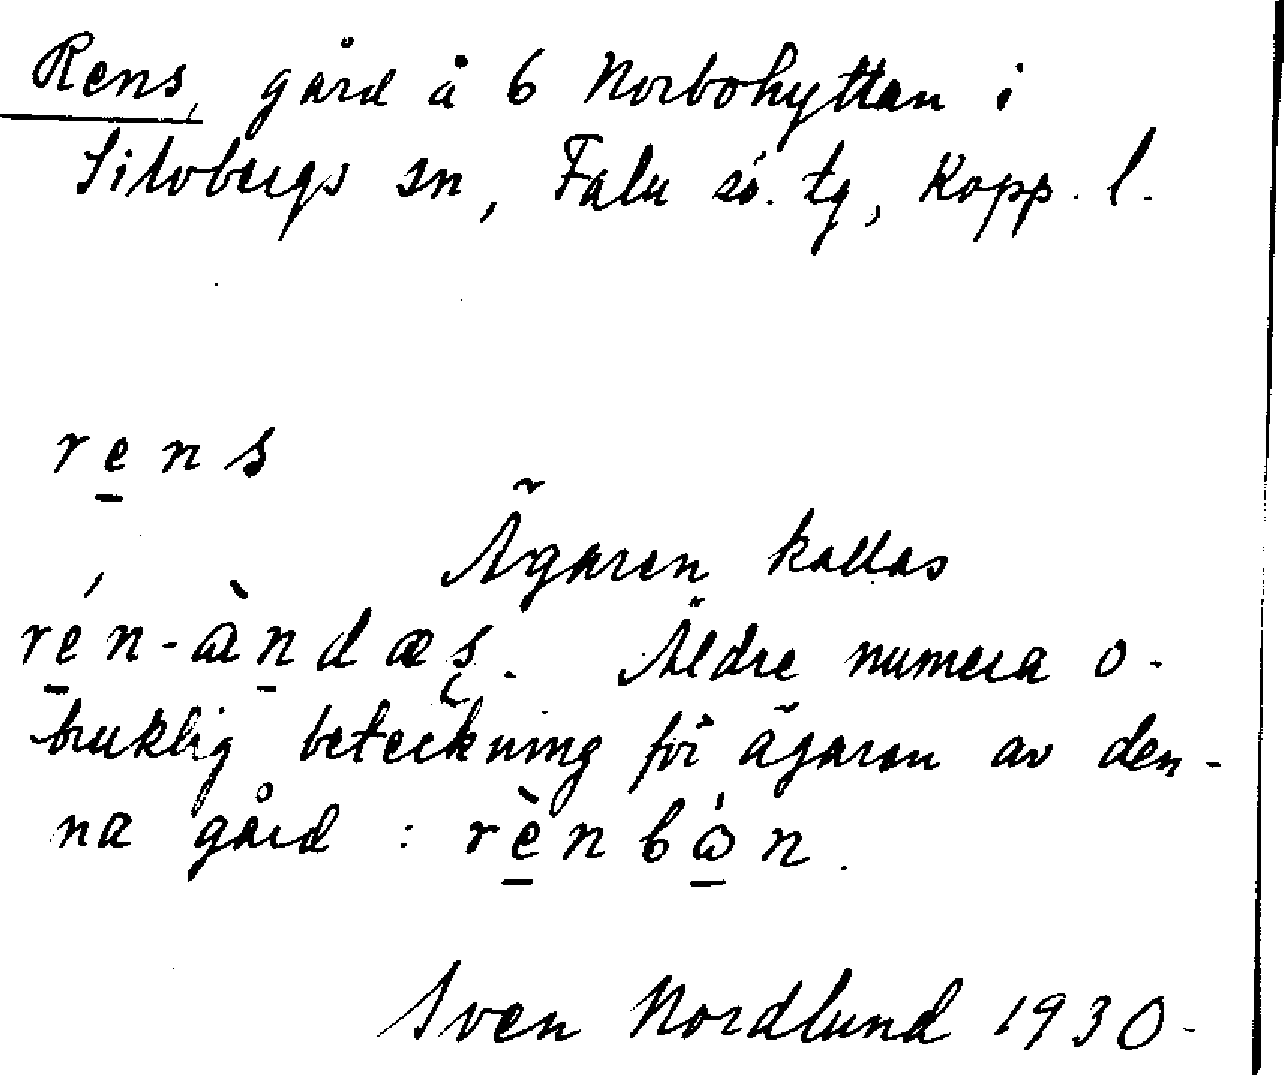 Rens, gård å 6 Norbohyttan i
Silvbergs sn, Falu sö. tg, Kopp. l.
re̱ns
Ägaren kallas
ré̱n-àṉdæş. Äldre numera o-
bruklig beteckning för ägaren av den-
na gård: rè̱nbώ̱n.
Sven Nordlund 1930.